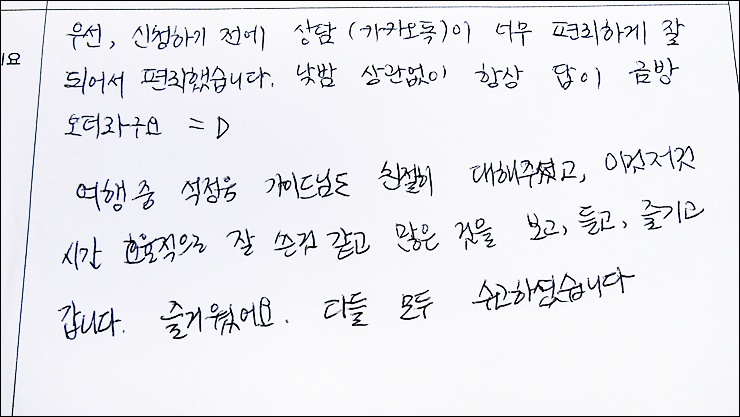 우선, 신청하기 전에 상담(카카오톡)이 너무 편리하게 잘
되어서 편리했습니다. 낮밤 상관없이 항상 답이 금방
오더라구요 =D
여행 중 석정욱 가이드님도 친절히 대해주셨고, 이것저것
시간 효율적으로 잘 쓴것 같고 많은 것을 보고, 듣고, 즐기고
갑니다. 즐거웠어요. 다들 모두 수고하셨습니다